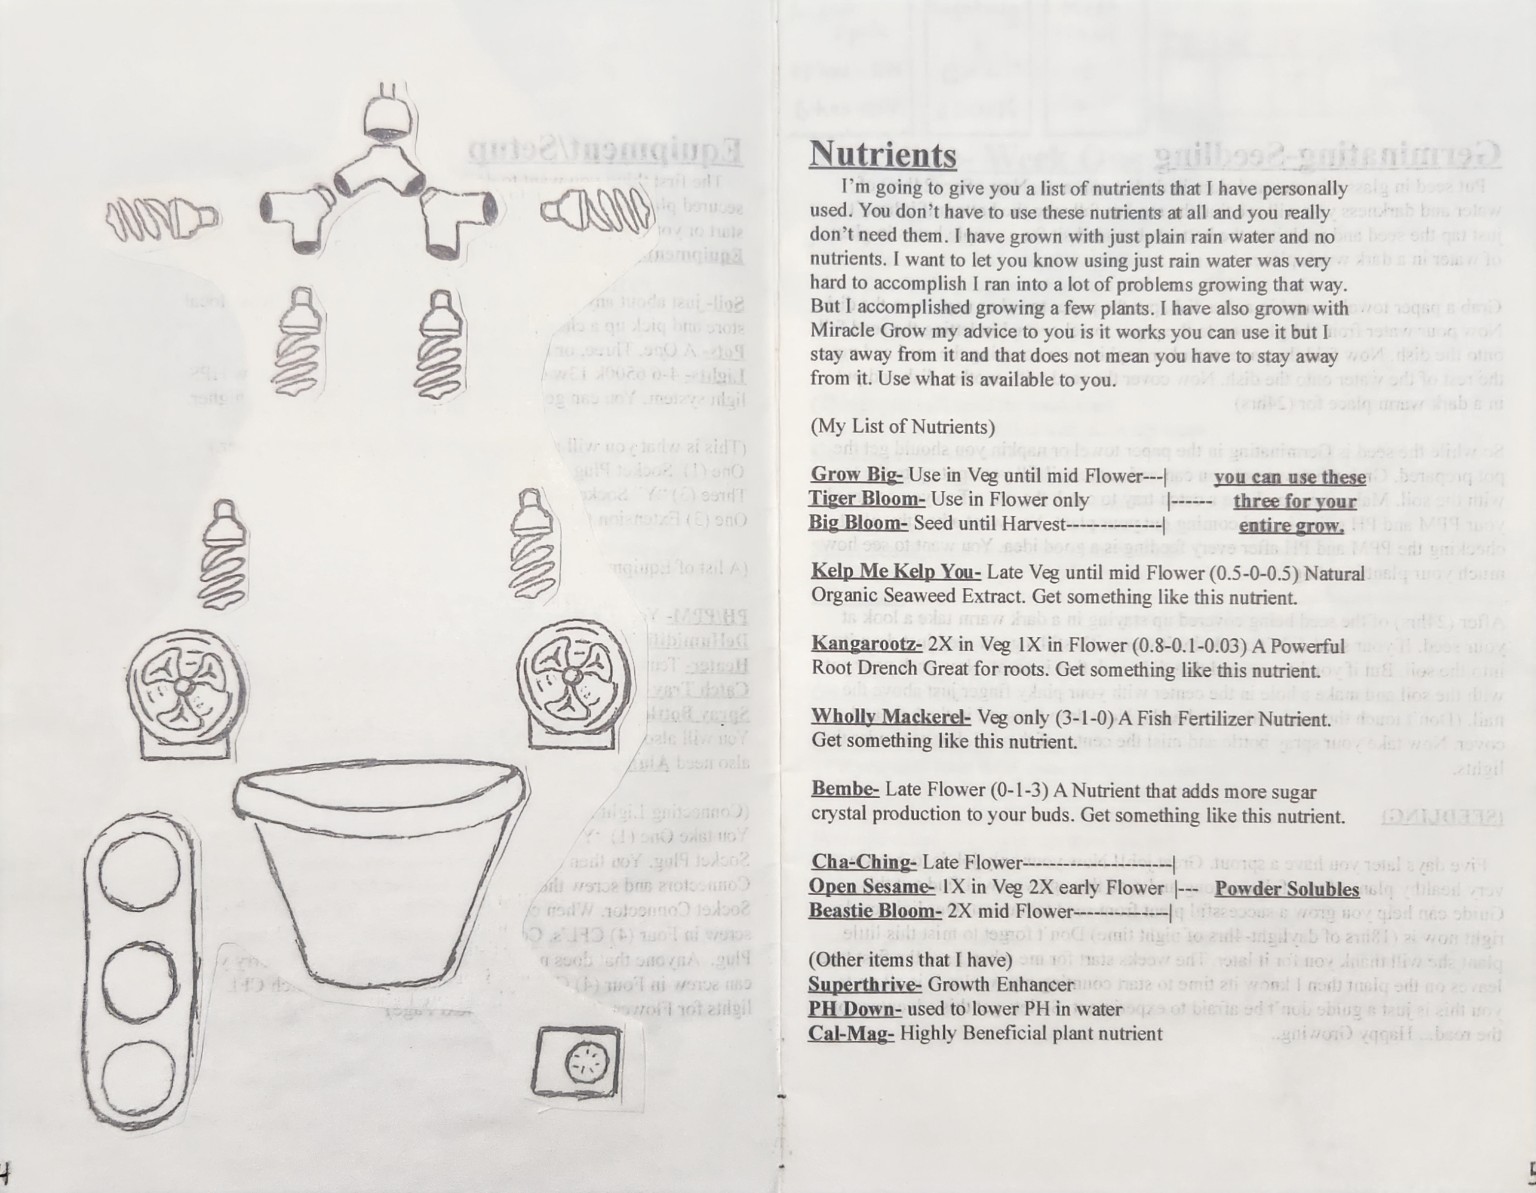 Nutrients
I'm going to give you a list of nutrients that I have personally
used. You don't have to use these nutrients at all and you really
don't need them. I have grown with just plain rain water and no
nutrients. I want to let you know using just rain water was very
hard to accomplish I ran into a lot of problems growing that way.
But I accomplished growing a few plants. I have also grown with
Miracle Grow my advice to you is it works you can use it but I
stay away from it and that does not mean you have to stay away
from it. Use what is available to you.
(My List of Nutrients)
Grow Big- Use in Veg until mid Flower---| you can use these
Tiger Bloom- Use in Flower only |------ three for your
Big Bloom- Seed until Harvest-------------| entire grow.
Kelp Me Kelp You- Late Veg until mid Flower (0.5-0-0.5) Natural
Organic Seaweed Extract. Get something like this nutrient.
Kangarootz- 2X in Veg 1X in Flower (0.8-0.1-0.03) A Powerful
Root Drench Great for roots. Get something like this nutrient.
Wholly Mackerel- Veg only (3-1-0) A Fish Fertilizer Nutrient.
Get something like this nutrient.
Bembe- Late Flower (0-1-3) A Nutrient that adds more sugar
crystal production to your buds. Get something like this nutrient.
Cha-Ching- Late Flower----------------------|
Open Sesame- 1X in Veg 2X early Flower |--- Powder Solubles
Beastie Bloom- 2X mid Flower--------------|
(Other items that I have)
Superthrive- Growth Enhancer
PH Down- used to lower PH in water
Cal-Mag- Highly Beneficial plant nutrient
4
5